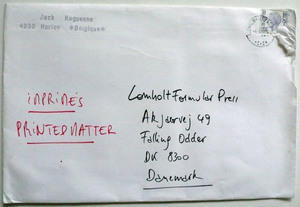 Jack Keguenne
4030 Marlee *Belgique*
IMPRIMÉS
PRINTED MATTER
Lomholt Formular Press
Akjaervej 49
Falling Odder
DK 8300
Danemark